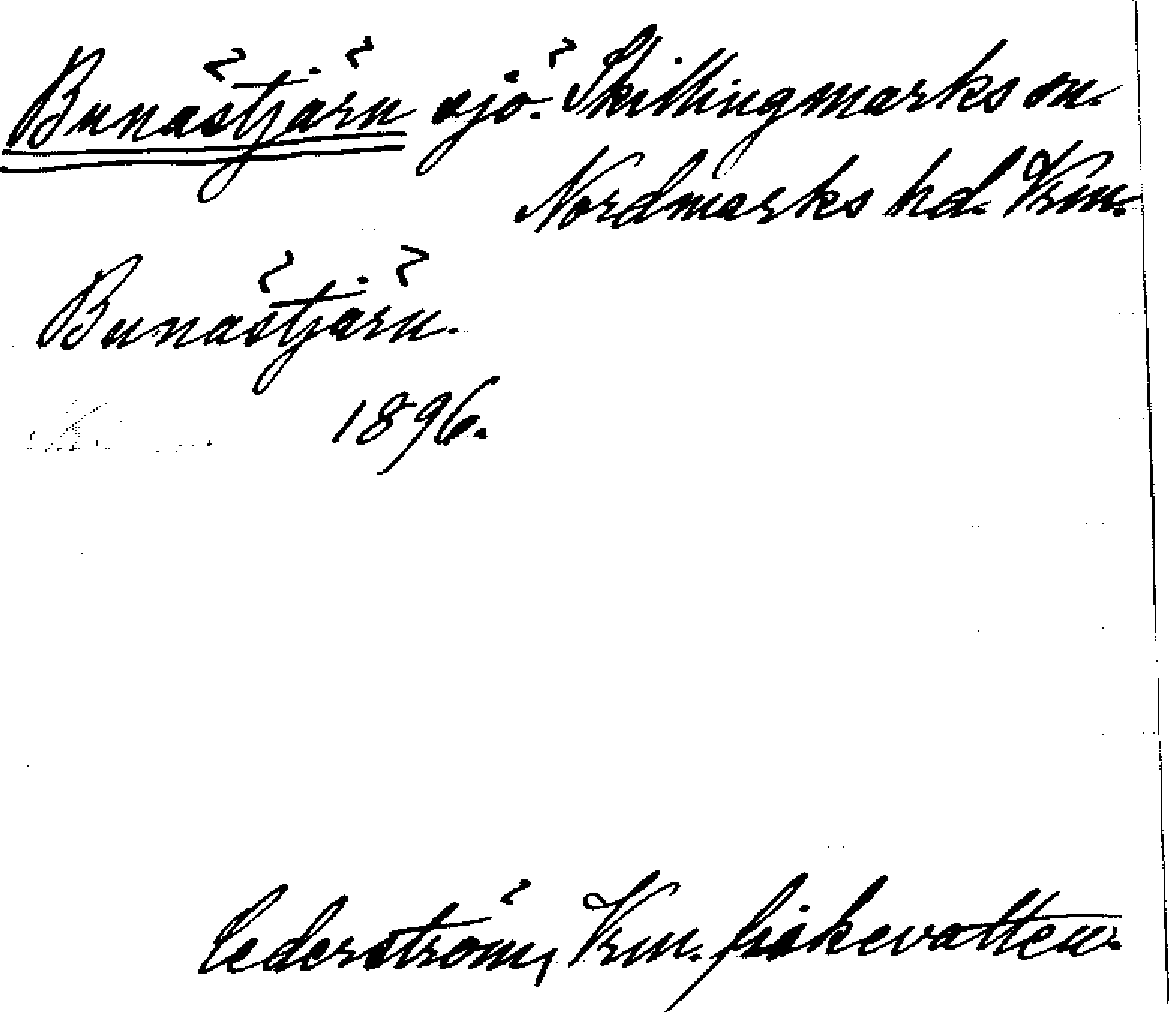 Bunästjärn sjö. Skillingmarks sn.
Nordmarks hd. Vrm.
Bunästjärn.
1896.
Cederström, Vrm. fiskevatten.